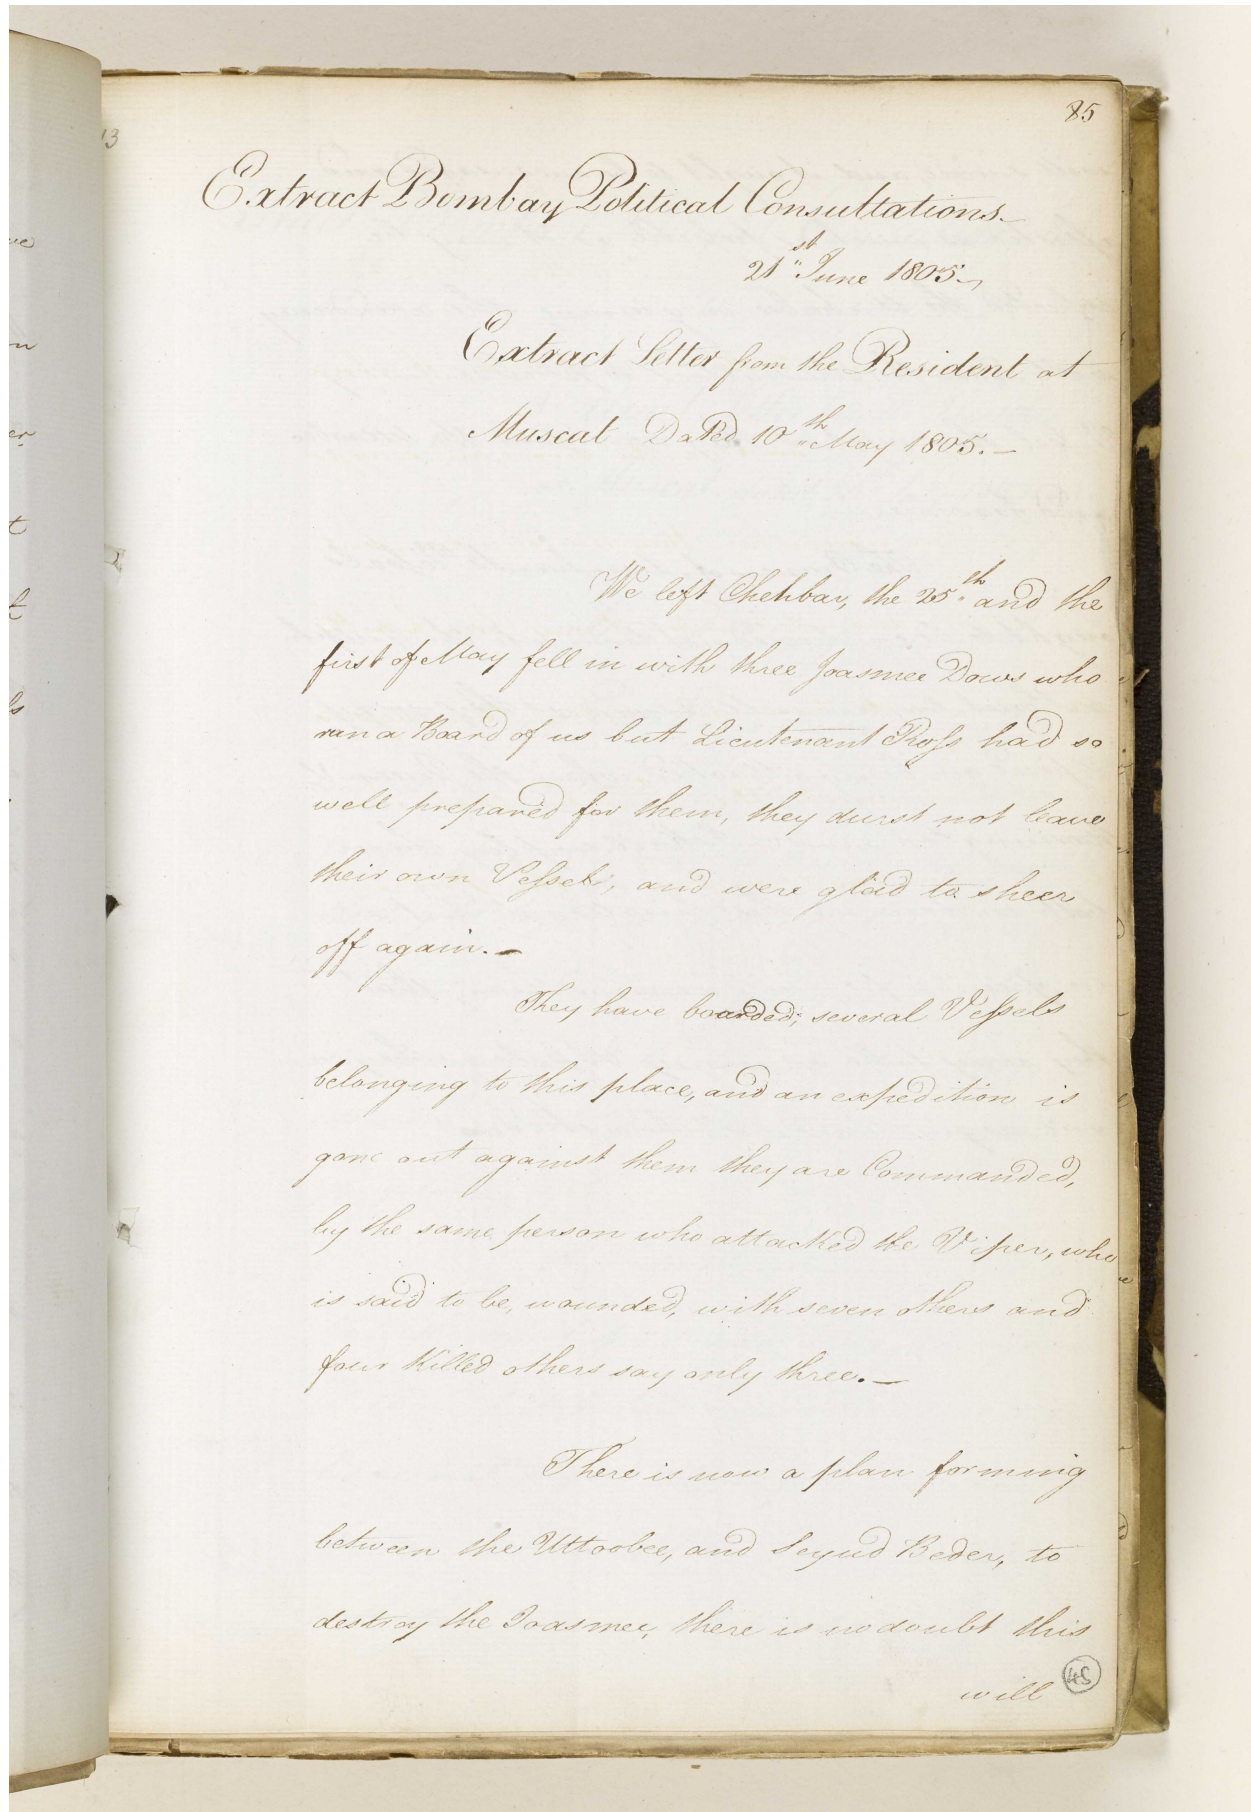 85
Extract Bombay Political Consultations.
21st June 1805.
Extract Letter from the Resident at
Muscat Dated 10th May 1805. —
We left Chehbar, the 25th and the
first of May fell in with three Joasmee Dows who
ran a Board of us but Lieutenant Ross had so
well prepared for them, they durst not leave
their own Vessels, and were glad to sheer
off again. —
They have boarded, several Vessels
belonging to this place, and an expedition is
gone out against them they are Commanded,
by the same person who attacked the Viper, who
is said to be, wounded, with seven others and
four Killed others say only three. —
There is now a plan forming
between the Uttoobee, and Seyud Beder, to
destroy the Joasmee, there is no doubt this
will
45